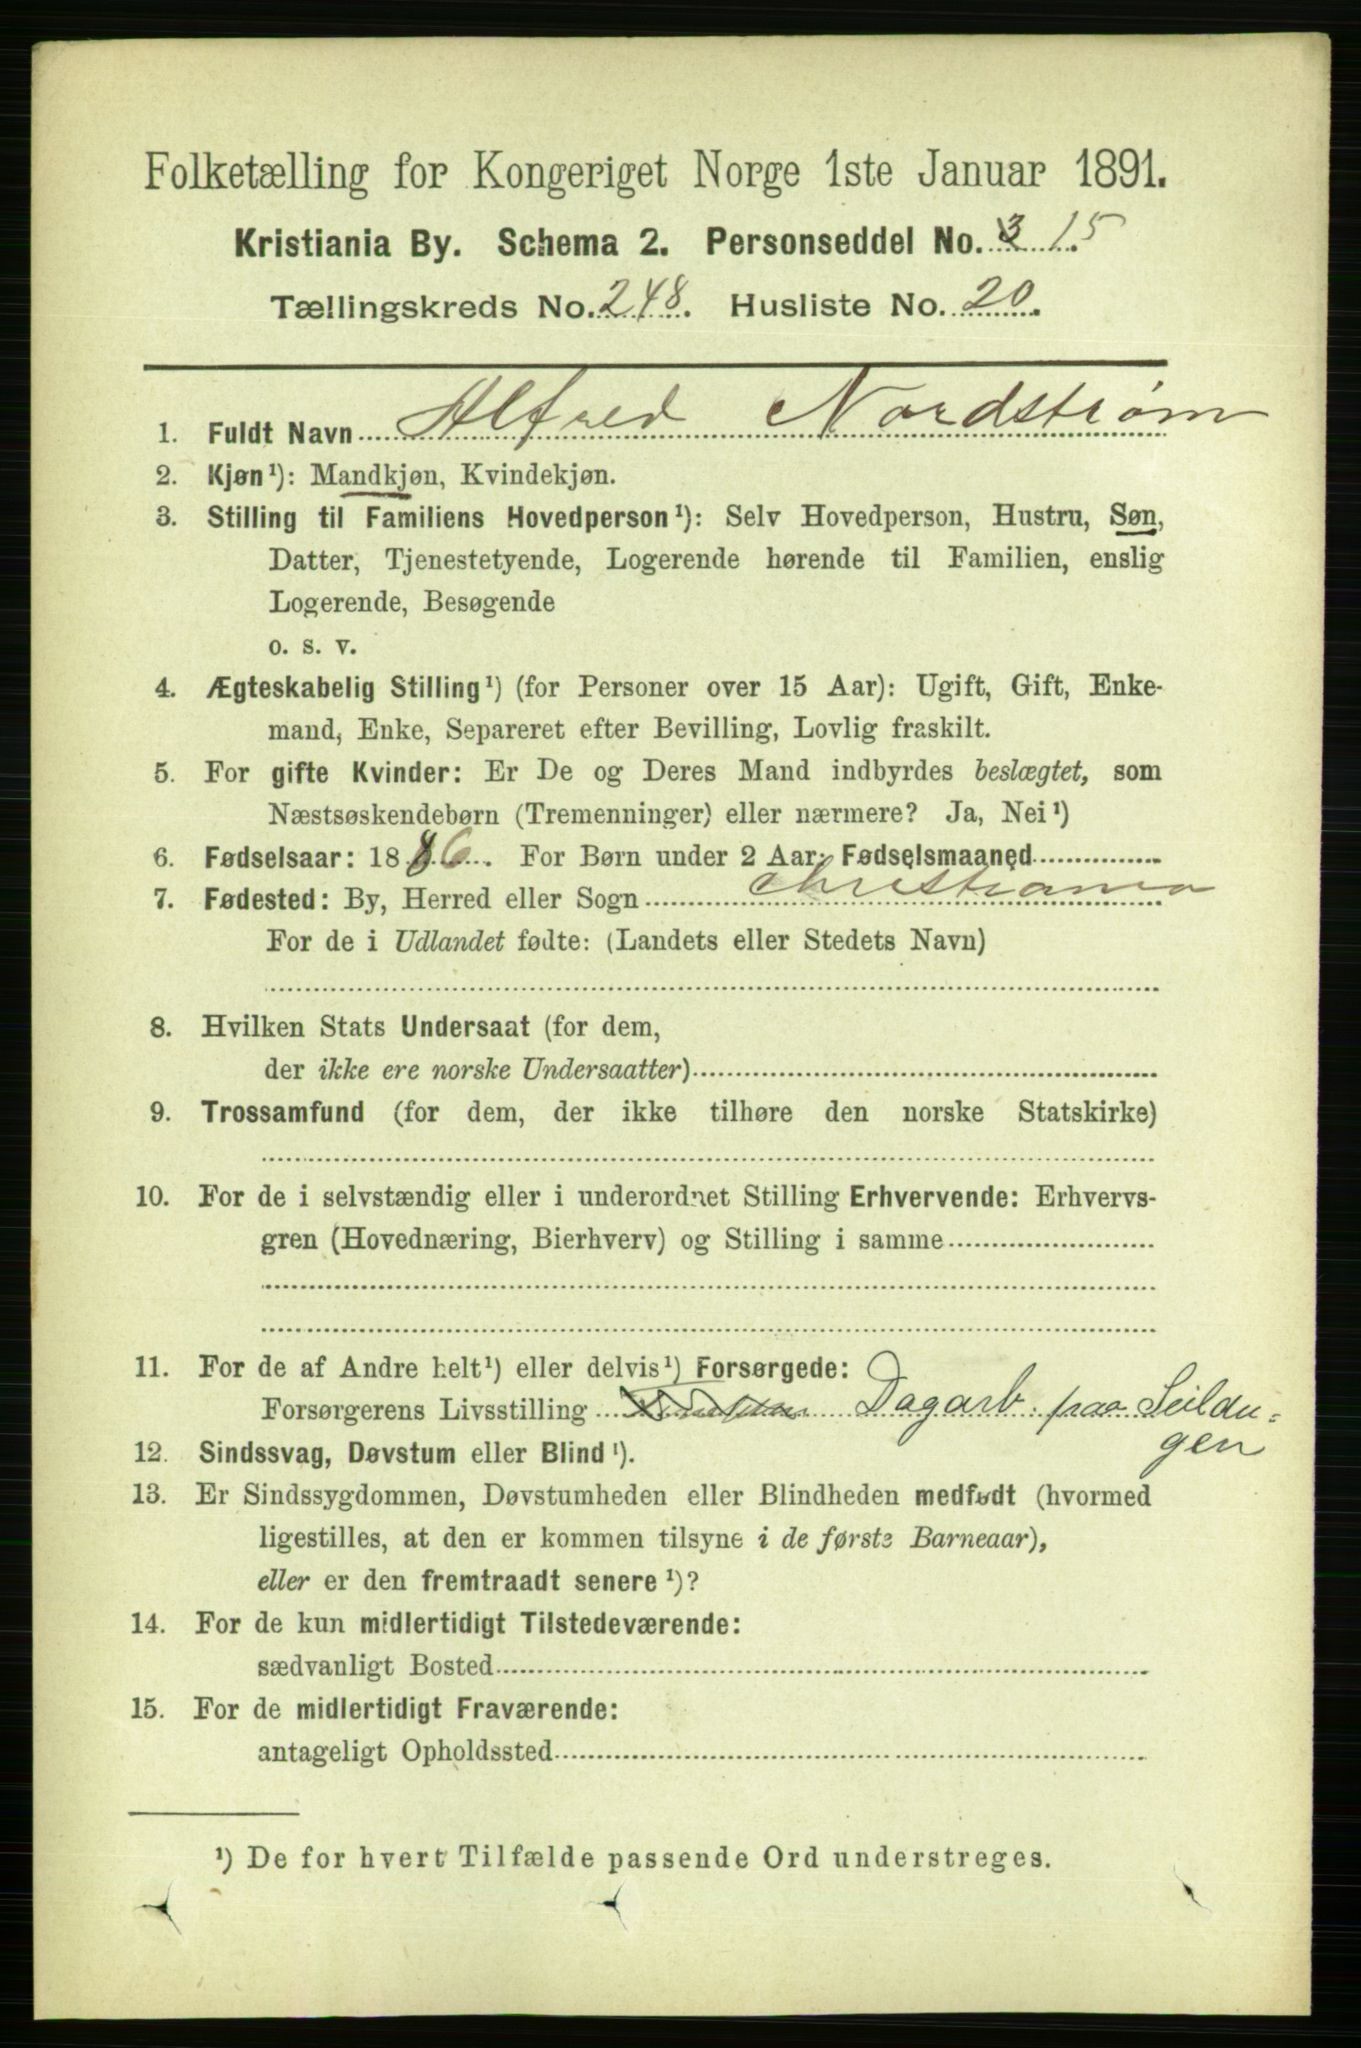 Folketælling for Kongeriget Norge 1ste Januar 1891.
Kristiania By. Schema 2. Personseddel No. 3 15
Tællingskreds No. 248. Husliste No. 20.
1. Fuldt Navn Alfred Nordstrøm
2. Kjøn¹): Mandkjøn, Kvindekjøn.
3. Stilling til Familiens Hovedperson¹): Selv Hovedperson, Hustru, Søn,
Datter, Tjenestetyende, Logerende hørende til Familien, enslig
Logerende, Besøgende
o. s. v.
4. Ægteskabelig Stilling¹) (for Personer over 15 Aar): Ugift, Gift, Enke-
mand, Enke, Separeret efter Bevilling, Lovlig fraskilt.
5. For gifte Kvinder: Er De og Deres Mand indbyrdes beslægtet, som
Næstsøskendebørn (Tremenninger) eller nærmere? Ja, Nei¹)
6. Fødselsaar: 1886. For Børn under 2 Aar: Fødselsmaaned
7. Fødested: By, Herred eller Sogn Christiania
For de i Udlandet fødte: (Landets eller Stedets Navn)
8. Hvilken Stats Undersaat (for dem,
der ikke ere norske Undersaatter)
9. Trossamfund (for dem, der ikke tilhøre den norske Statskirke)
10. For de i selvstændig eller i underordnet Stilling Erhvervende: Erhvervs-
gren (Hovednæring, Bierhverv) og Stilling i samme
11. For de af Andre helt¹) eller delvis¹) Forsørgede:
Forsørgerens Livsstilling Dagarb. paa Seildu-
gen
12. Sindssvag, Døvstum eller Blind¹).
13. Er Sindssygdommen, Døvstumheden eller Blindheden medfødt (hvormed
ligestilles, at den er kommen tilsyne i de første Barneaar),
eller er den fremtraadt senere¹)?
14. For de kun midlertidigt Tilstedeværende:
sædvanligt Bosted
15. For de midlertidigt Fraværende:
antageligt Opholdssted
¹) De for hvert Tilfælde passende Ord understreges.